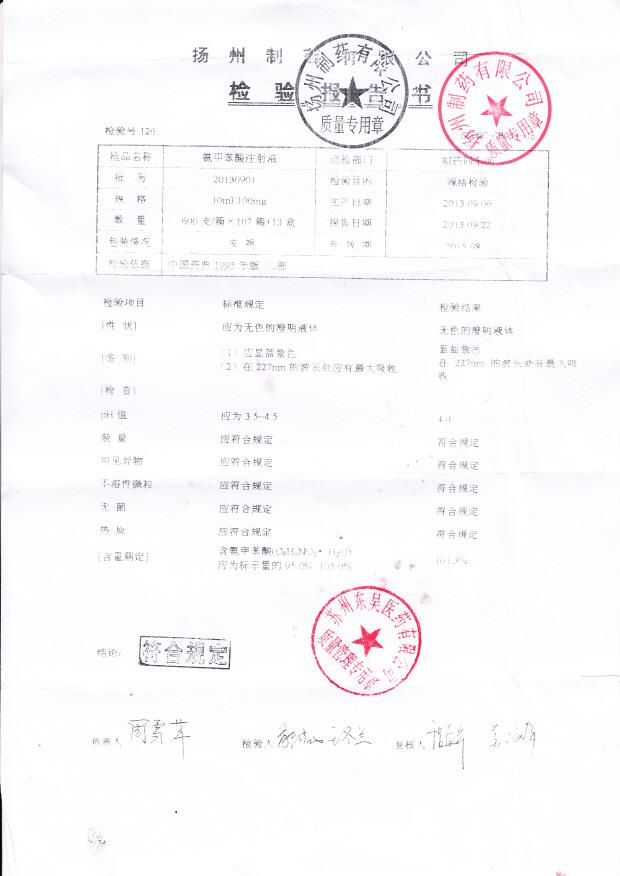 扬州制药有限公司
检验报告书
扬州制药有限公司
质量专用章
扬州制药有限公司
质量专用章
检验号 126
检品名称 氨甲苯酸注射液 送检部门 制药四车间
批号 20130901 检验目的 规格检验
规格 10ml:100mg 生产日期 2013.09.06
数量 600支/箱×107箱+13盒 报告日期 2013.09.22
包装情况 有效期 2015.08
检验依据 中国药典1995年版 二部
检验项目 标准规定 检验结果
[性状] 应为无色的澄明液体 无色的澄明液体
[鉴别] (1)应显蓝紫色 显蓝紫色
(2)在227nm的波长处应有最大吸收 在227nm的波长处有最大吸收
[检查]
pH值 应为3.5~4.5 4.0
装量 应符合规定 符合规定
可见异物 应符合规定 符合规定
不溶性微粒 应符合规定 符合规定
无菌 应符合规定 符合规定
热原 应符合规定 符合规定
[含量测定] 含氨甲苯酸(C₈H₉NO₂·H₂O)
应为标示量的95.0%~105.0% 101.3%
苏州东吴医药有限公司
质量管理专用章
结论: 符合规定
负责人 周雪苹 检验人 复核人